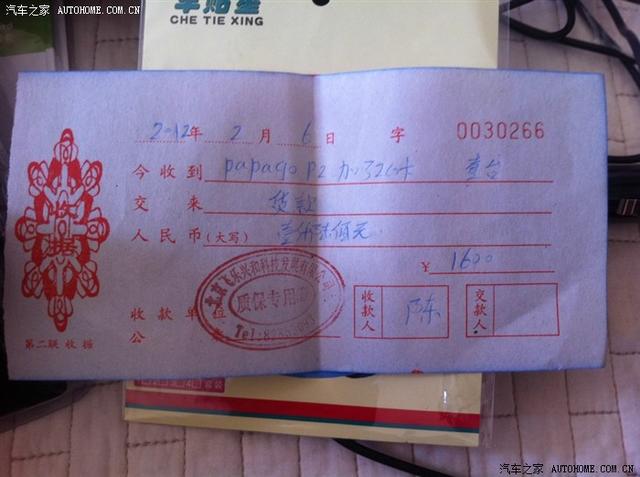 汽车之家 AUTOHOME.COM.CN
车贴星
CHE TIE XING
2012年 2月 6日 字 0030266
今收到 papago P2 加32G卡 壹台
交来 货款
人民币(大写) 壹仟陆佰元
¥ 1600
北京飞乐兴和科技发展有限公司
质保专用章
收款单位
公章
收款人
交款人
第二联 收据
汽车之家 AUTOHOME.COM.CN